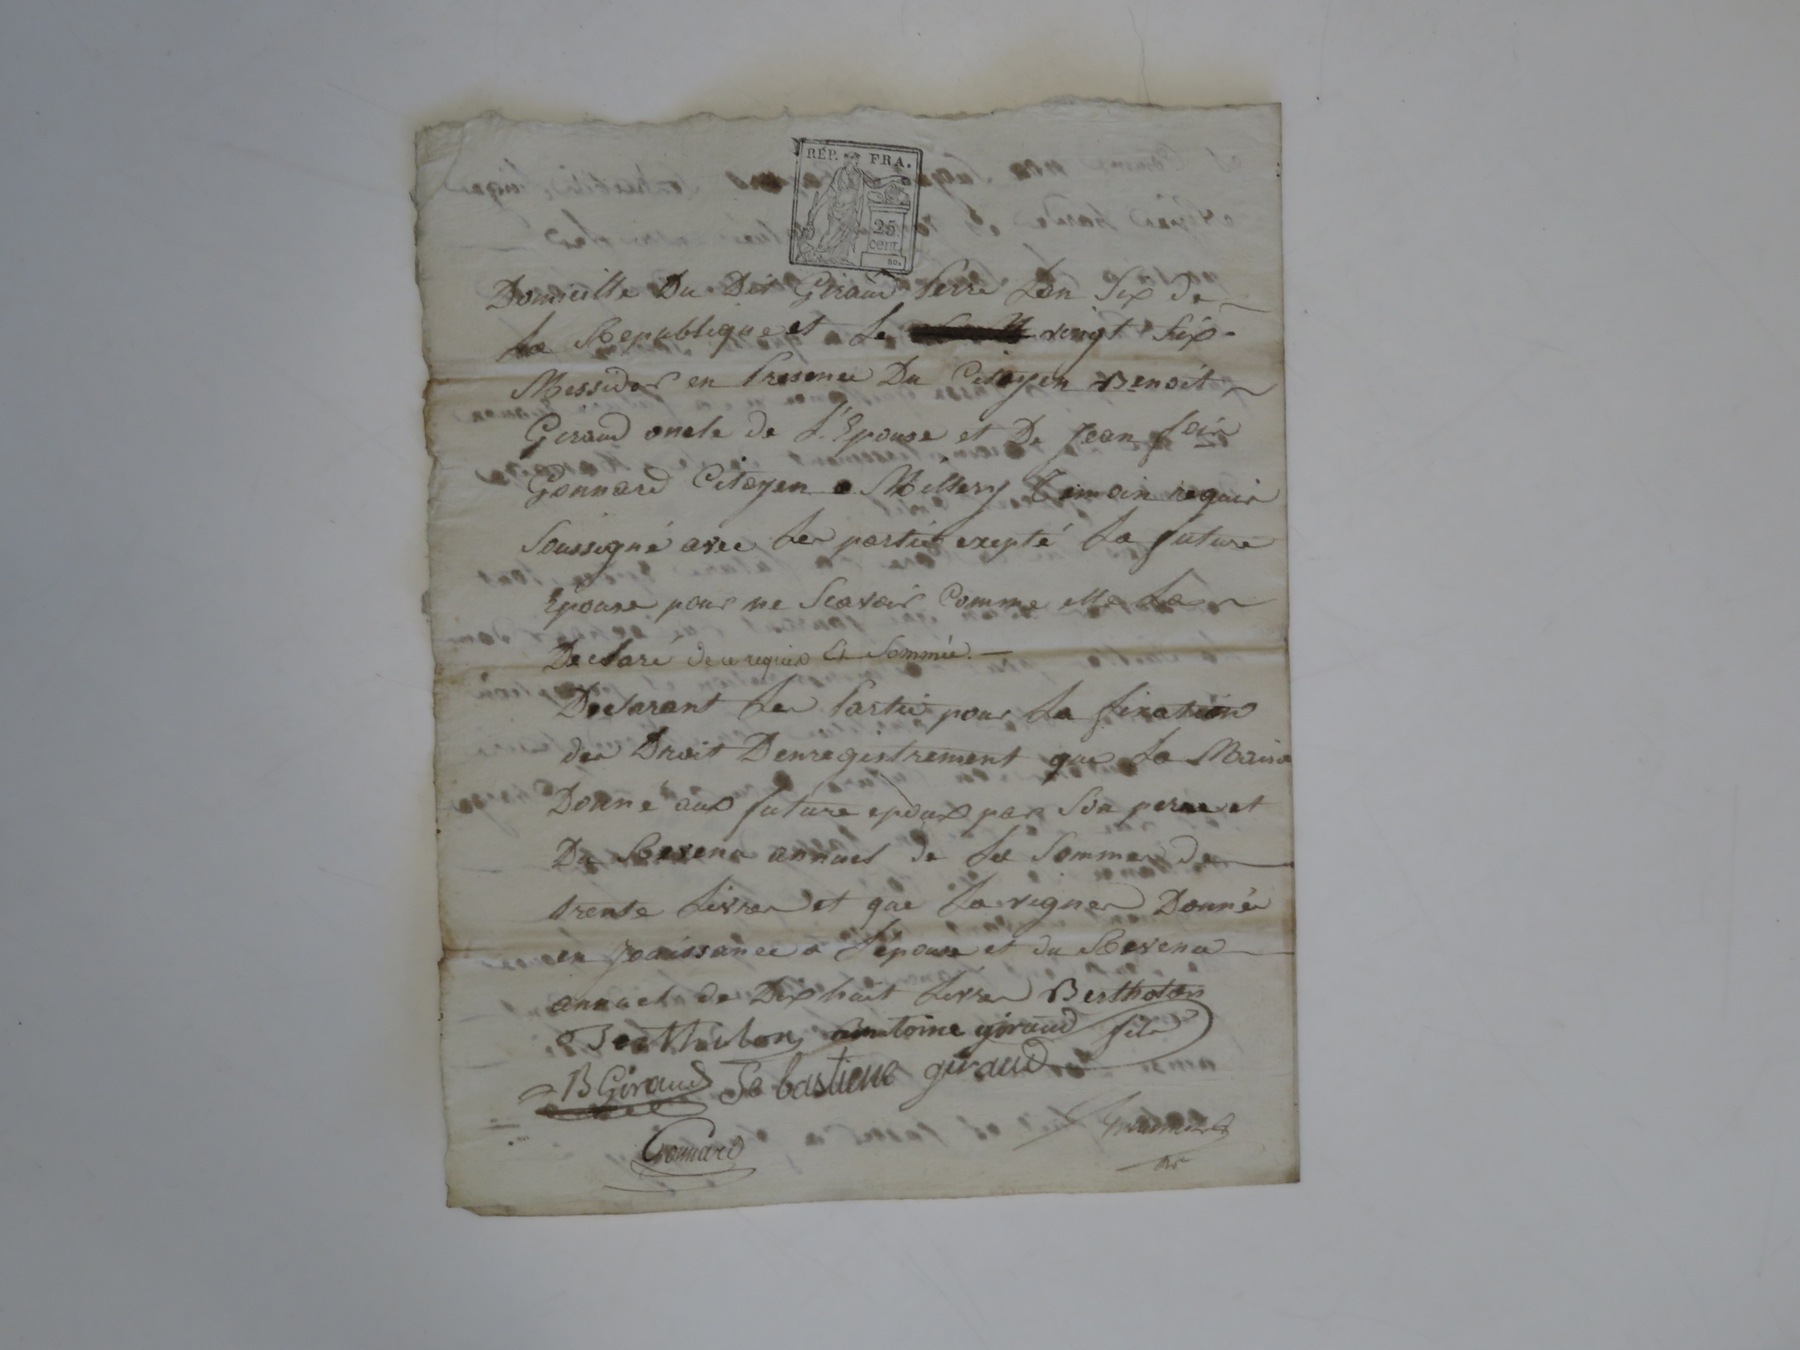 RÉP. FRA.
25
cent.
Domicille Du Dit Giraud Perre Lan Six de
La Republique et Le vingt Six
Messidor en Presence Du Citoyen Benoit
Giraud oncle de L'Epouse et De Jean
Gonnard Citoyen a Millery Temoin requis
Soussigné avec Les partie exepté La future
Epouse pour ne Scavoir Comme elle La
Declaré de ce requise Et Sommée.
Declarant Les Partie pour La fixation
des Droit Denregistrement que La Maison
Donné aux future epoux par Son perre et
Du Revenu annuel de La Somme de
trente Livres et que La vigne Donnée
en jouissance a L'epouse et du Revenu
annuel de Dix huit Livres Bertholon
Bertholon antoine giraud fils
B Giraud Sebastiene giraud
Gonnard